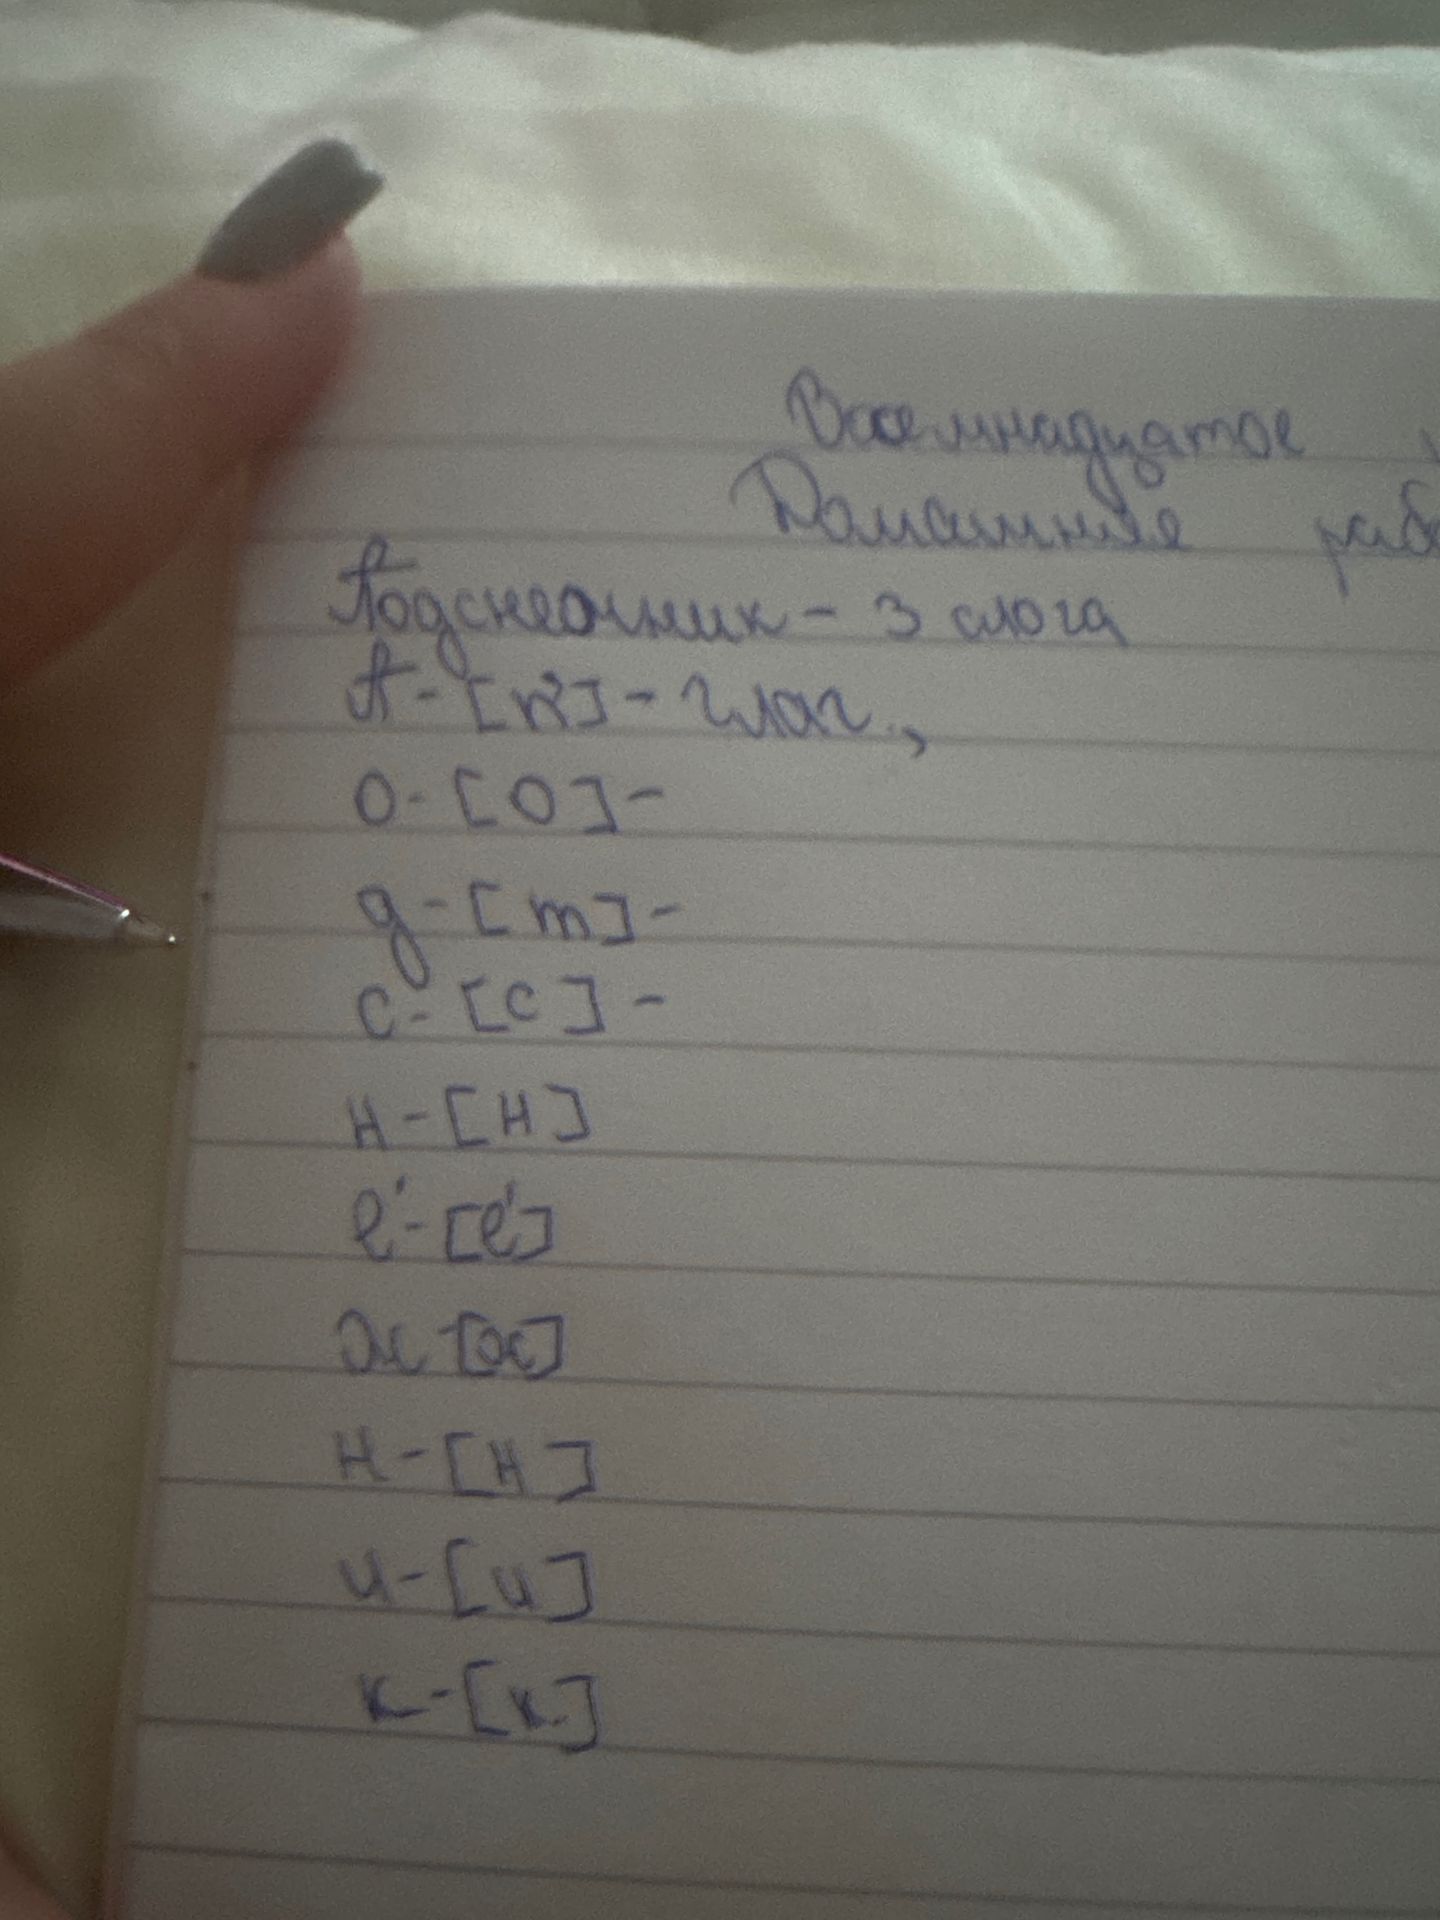 Восемнадцатое
Домашняя раб
Подснежник - 3 слога
П - [п] - глаг.,
о - [о] -
д - [т] -
с - [с] -
н - [н]
е́ - [е́]
ж - [ж]
н - [н]
и - [и]
к - [к]